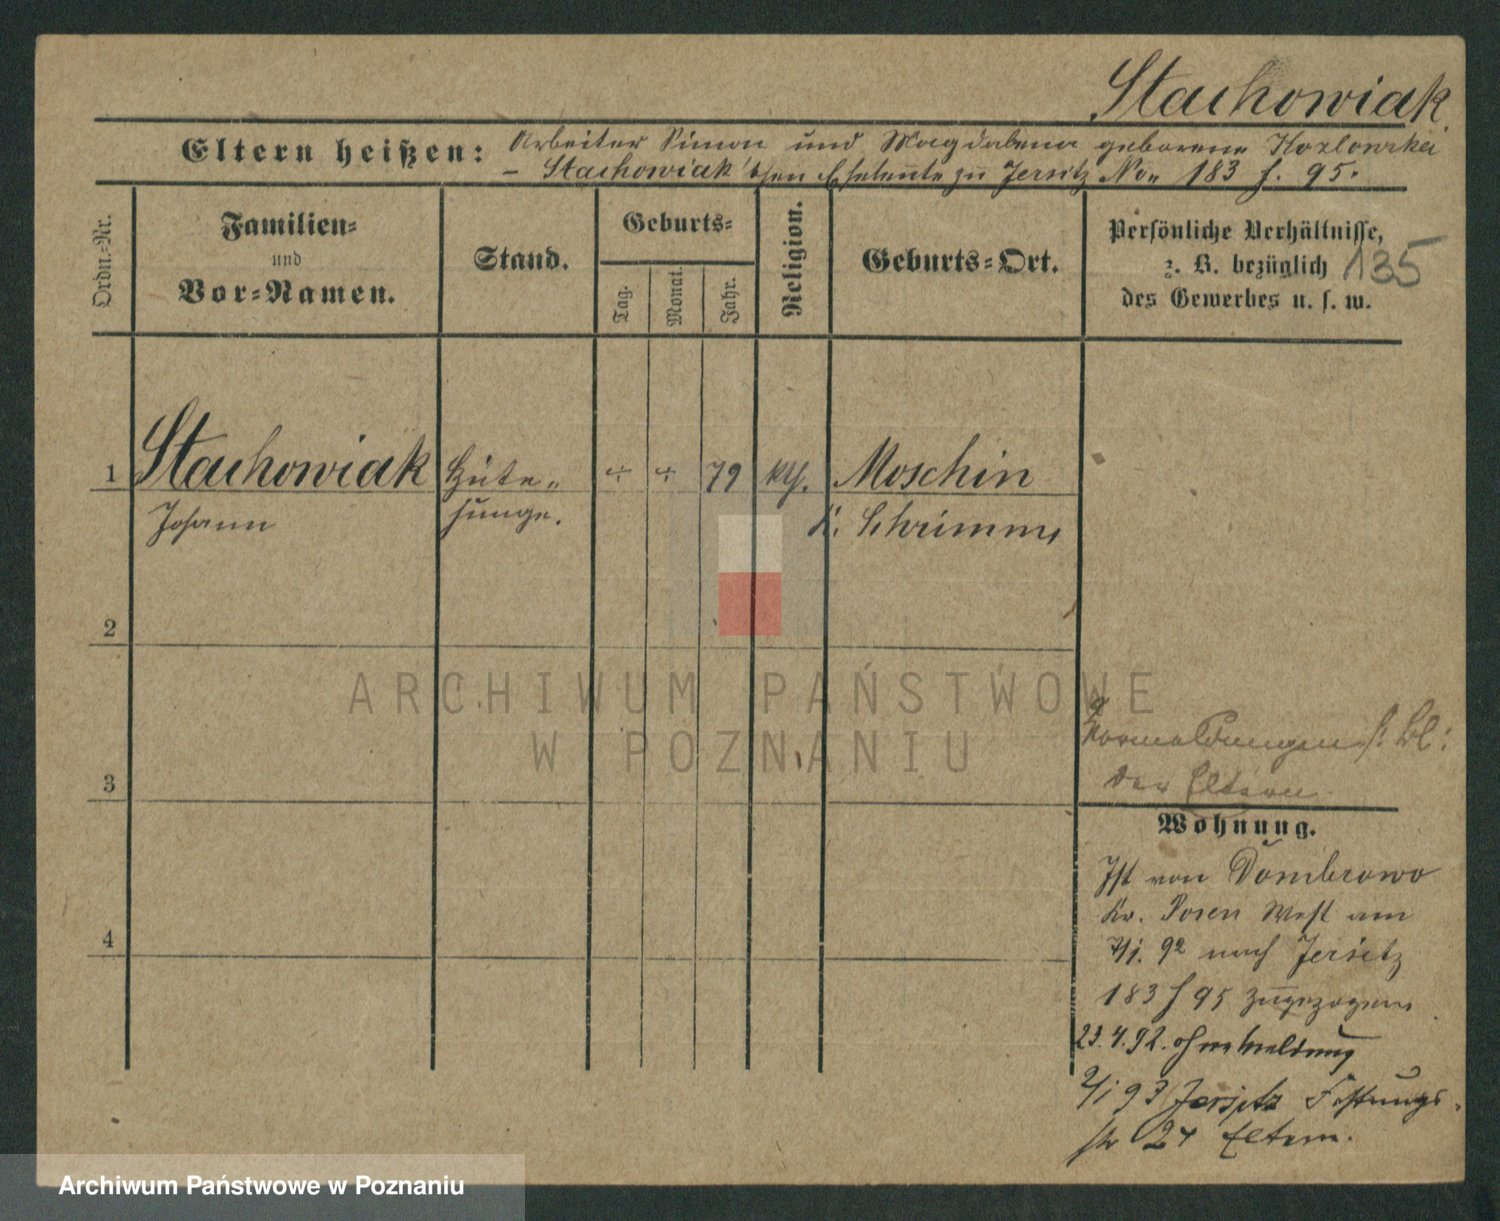 Stachowiak
Eltern heißen: Arbeiter Simon und Magdalena geborene Kozlowska
– Stachowiak'schen Eheleute zu Jersitz No. 183 f. 95.
Ordn.-Nr.
Familien-
und
Vor-Namen.
Stand.
Geburts-
Tag.
Monat.
Jahr.
Religion.
Geburts-Ort.
Persönliche Verhältnisse,
z. B. bezüglich
des Gewerbes u. s. w.
135
1 Stachowiak Hüte- 79 kth. Moschin
Johann junge. K. Schrimm
2
3
4
Vormeldungen s. Bl:
der Eltern
Wohnung.
Ist von Dombrowo
Kr. Posen West am
7/1. 92 nach Jersitz
183 f 95 zugezogen
23.4.92. ohne Meldung
2/1 93 Jersitz Festungs-
str 24 Eltern.
ARCHIWUM PAŃSTWOWE
W POZNANIU
Archiwum Państwowe w Poznaniu